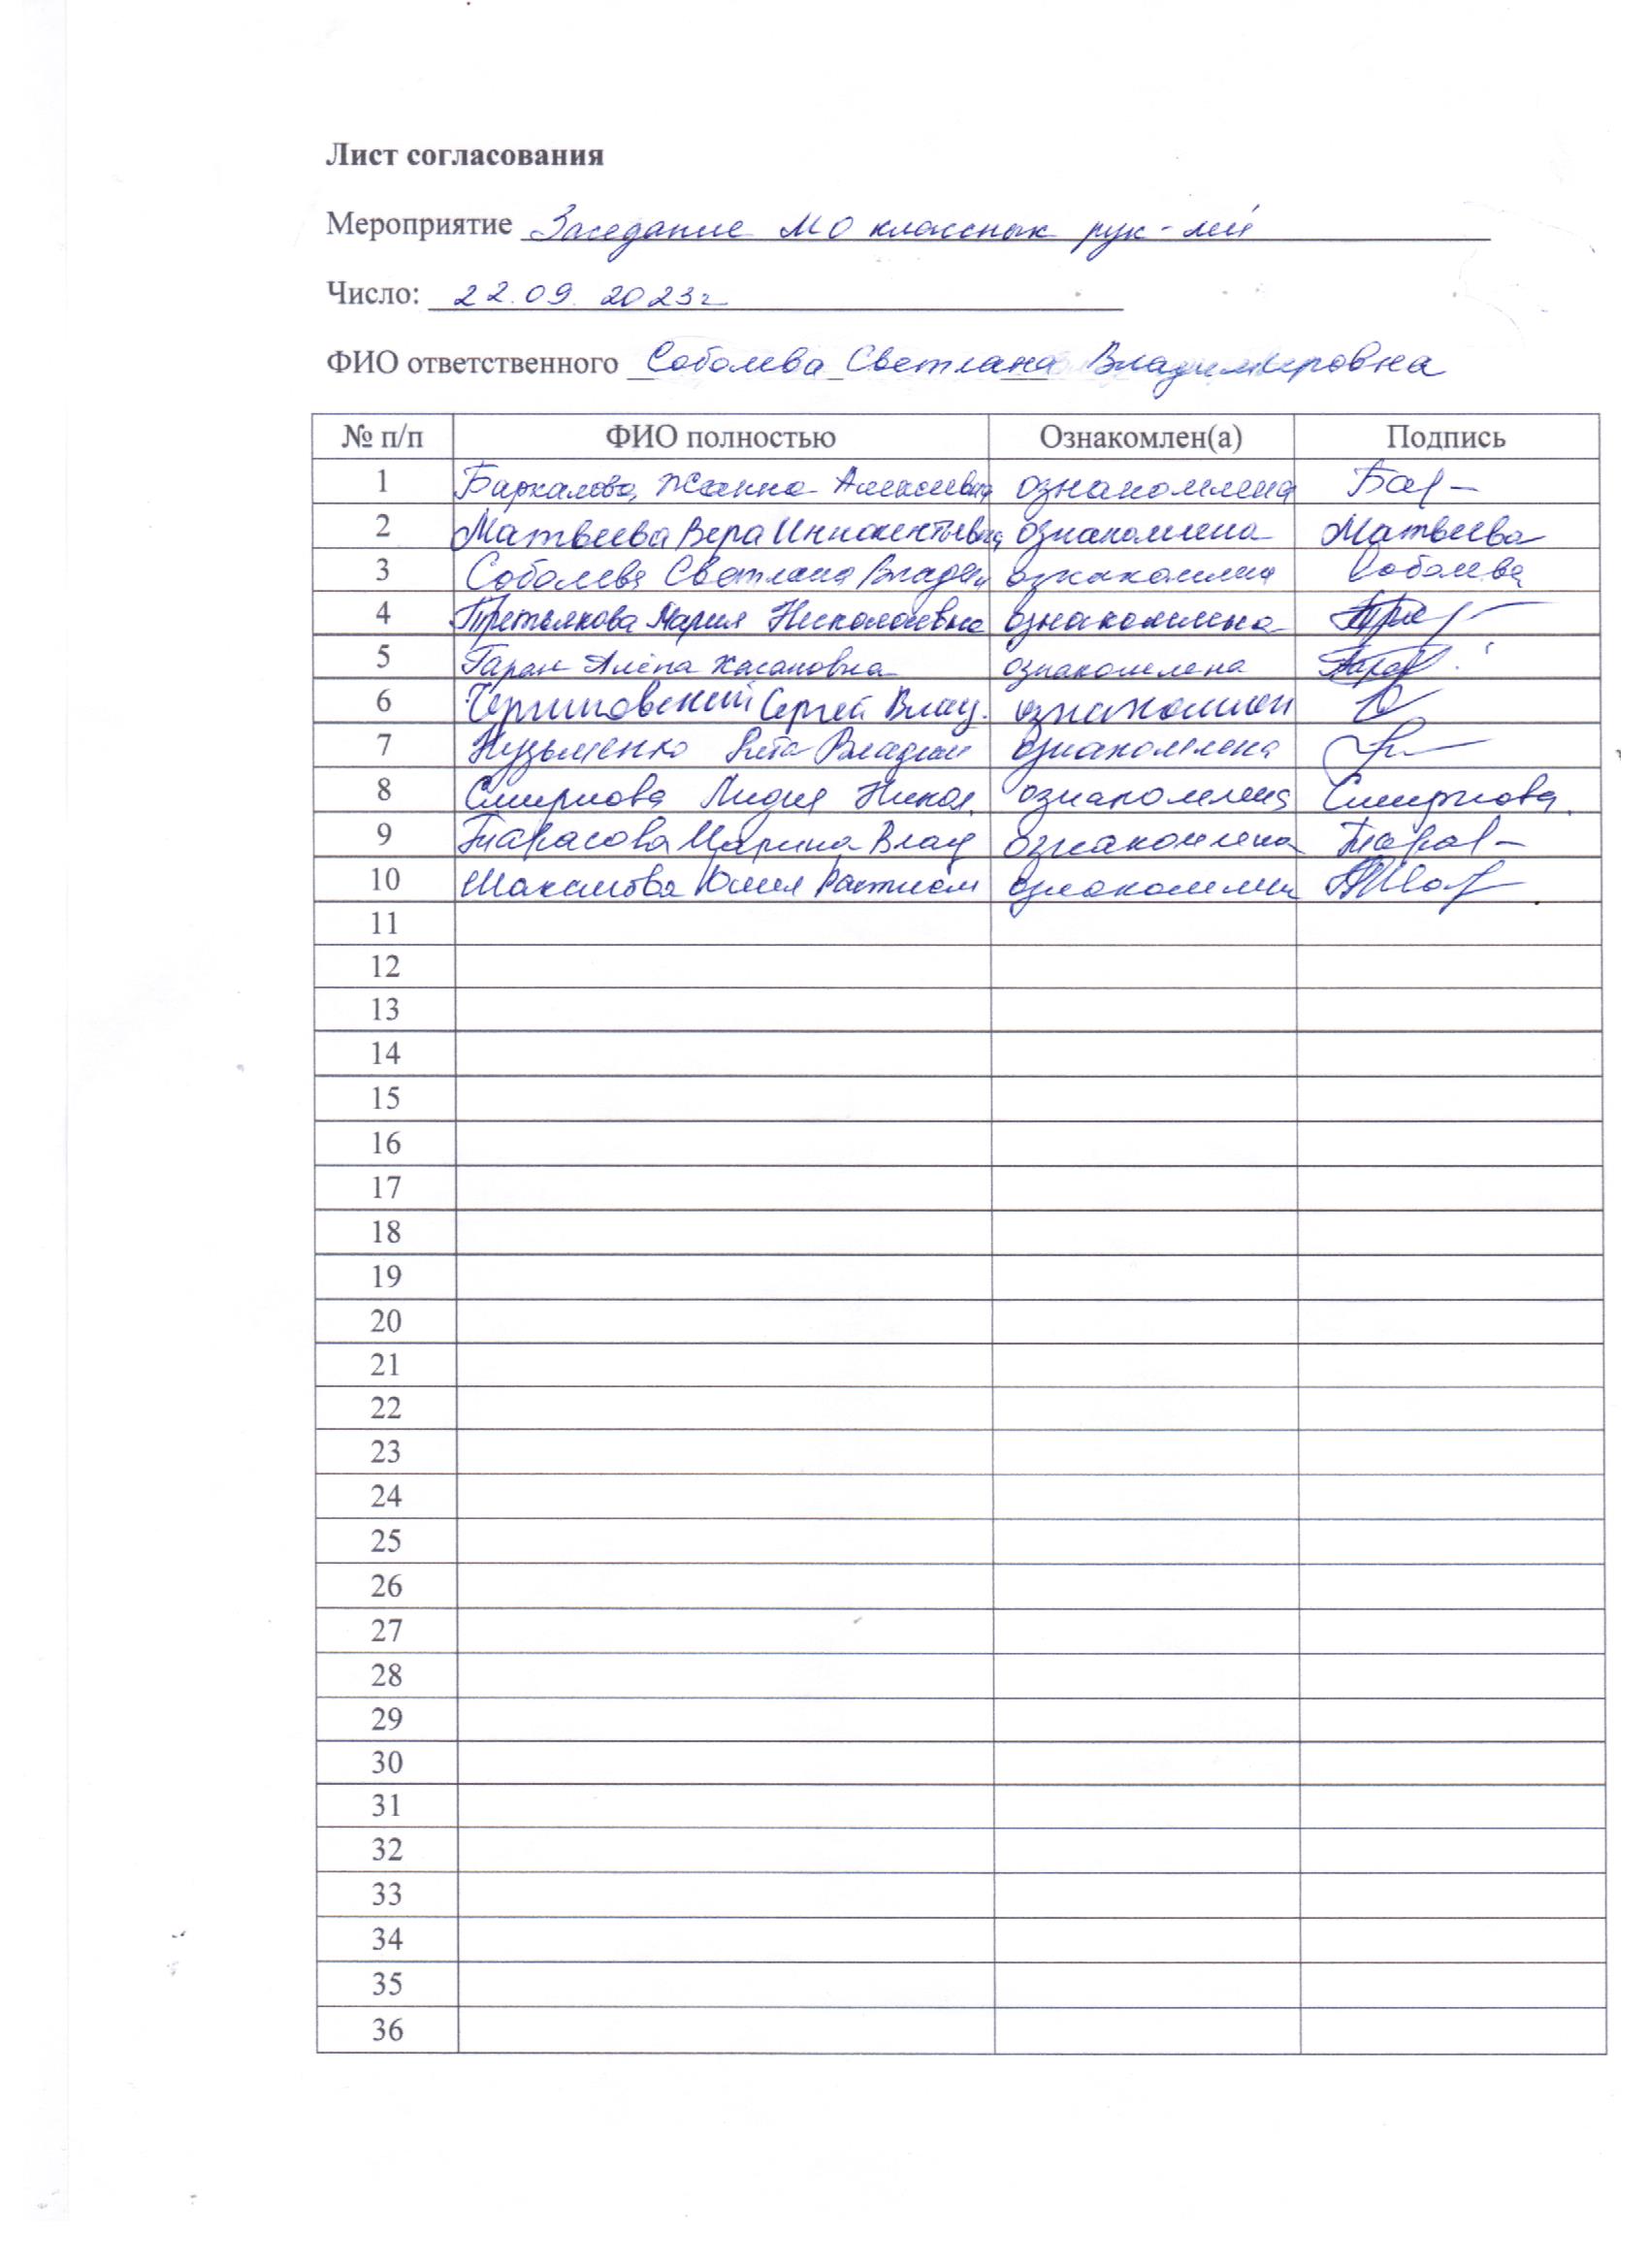 Лист согласования
Мероприятие Заседание МО классных рук-лей
Число: 22.09.2023г
ФИО ответственного Соболева Светлана Владимировна
№ п/п ФИО полностью Ознакомлен(а) Подпись
1 Баркалова Жанна Алексеевна ознакомлена Бар-
2 Матвеева Вера Иннокентьевна ознакомлена Матвеева
3 Соболева Светлана Владим ознакомлена Соболева
4 Третьякова Мария Николаевна ознакомлена
5 Гаран Алёна Хасановна ознакомлена
6 Сергей Влад. ознакомлен
7 Кузьменко Владим ознакомлена
8 Смирнова Лидия Никол. ознакомлена Смирнова
9 Тарасова Марина Влад ознакомлена Тарас-
10 Юлия ознакомлена
11
12
13
14
15
16
17
18
19
20
21
22
23
24
25
26
27
28
29
30
31
32
33
34
35
36